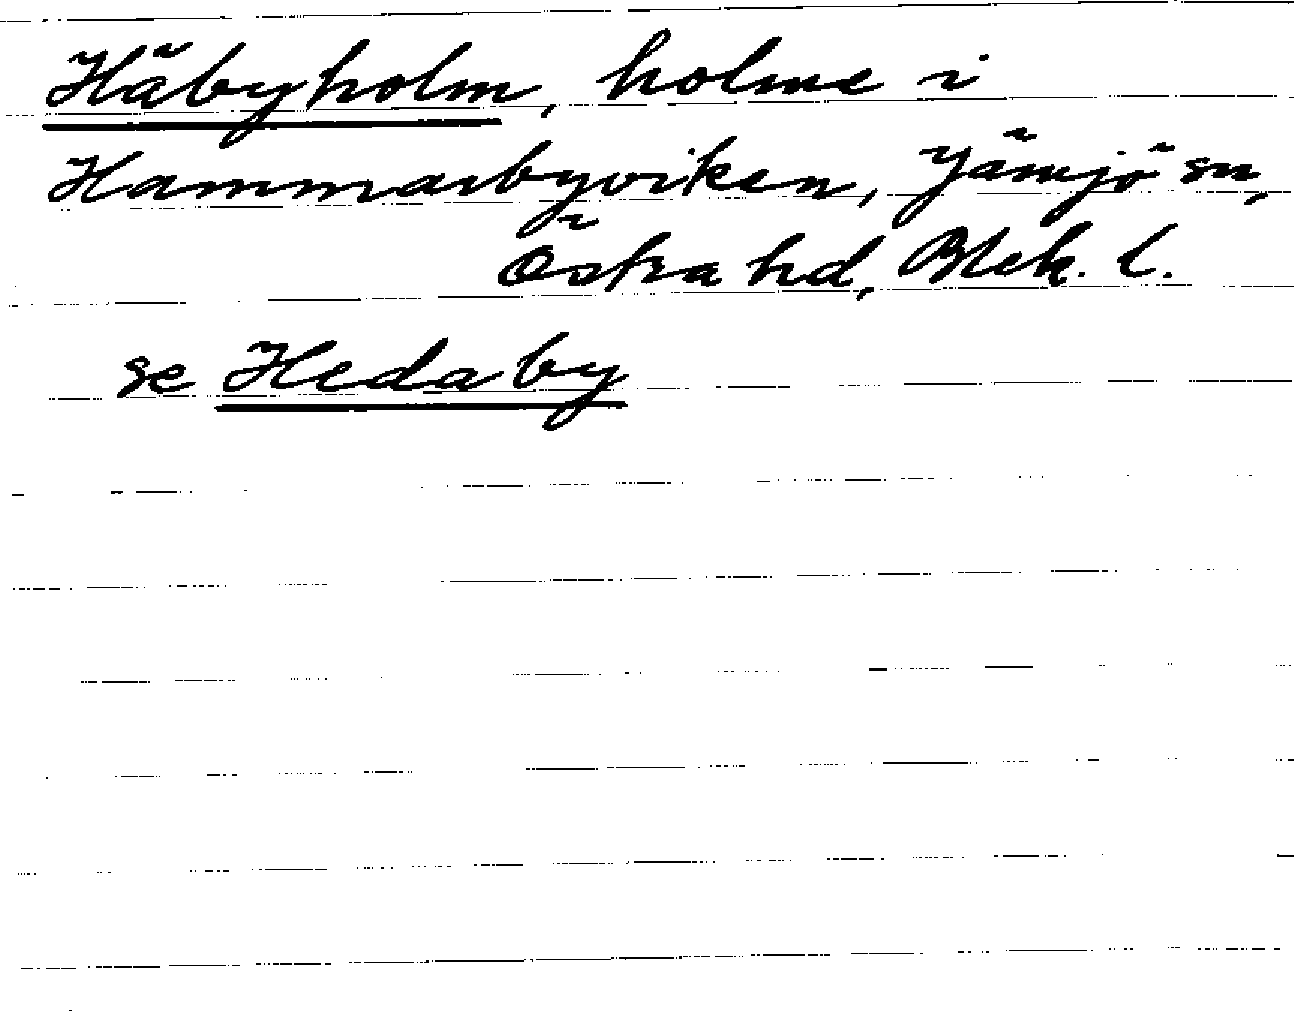 Häbyholm, holme i
Hammarbyviken, Jämjö sn,
Östra hd, Blek. l.
se Hedaby